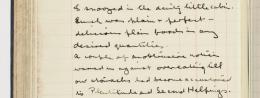 & snoozed in the dining little cabin.
Lunch was plain & perfect —
delicious plain foods in any
desired quantities.
A couple of ambitious notices
warned us against overeating till
our stomachs had become accustomed
to Plentitude and Second Helpings.